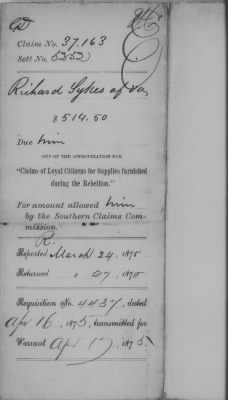 Claim No. 37.163
Sett No. 5252
Richard Sykes of Va,
$514.50
Due him
OUT OF THE APPROPRIATION FOR
"Claims of Loyal Citizens for Supplies furnished
during the Rebellion."
For amount allowed him
by the Southern Claims Com-
mission.
R.
Reported March 24, 1875
Returned " 27, 1875
Requisition No. 4437, dated
Apr 16, 1875, transmitted for
Warrant Apr 17, 1875